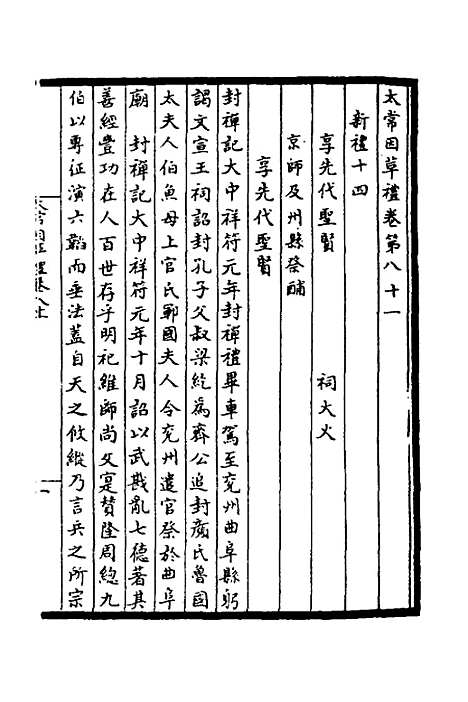 太常因革禮卷第八十一
新禮十四
享先代聖賢　祠大火
京師及州縣祭酺
享先代聖賢
封禪記大中祥符元年封禪禮畢車駕至兖州曲阜縣躬
謁文宣王祠詔封孔子父叔梁紇為齊公追封顏氏魯國
太夫人伯魚母上官氏鄆國夫人令兖州遣官祭於曲阜
廟　封禪記大中祥符元年十月詔以武戡亂七德著其
善經豊功在人百世存乎明祀維師尚父寔賛隆周總九
伯以專征演六韜而垂法蓋自天之攸縱乃言兵之所宗